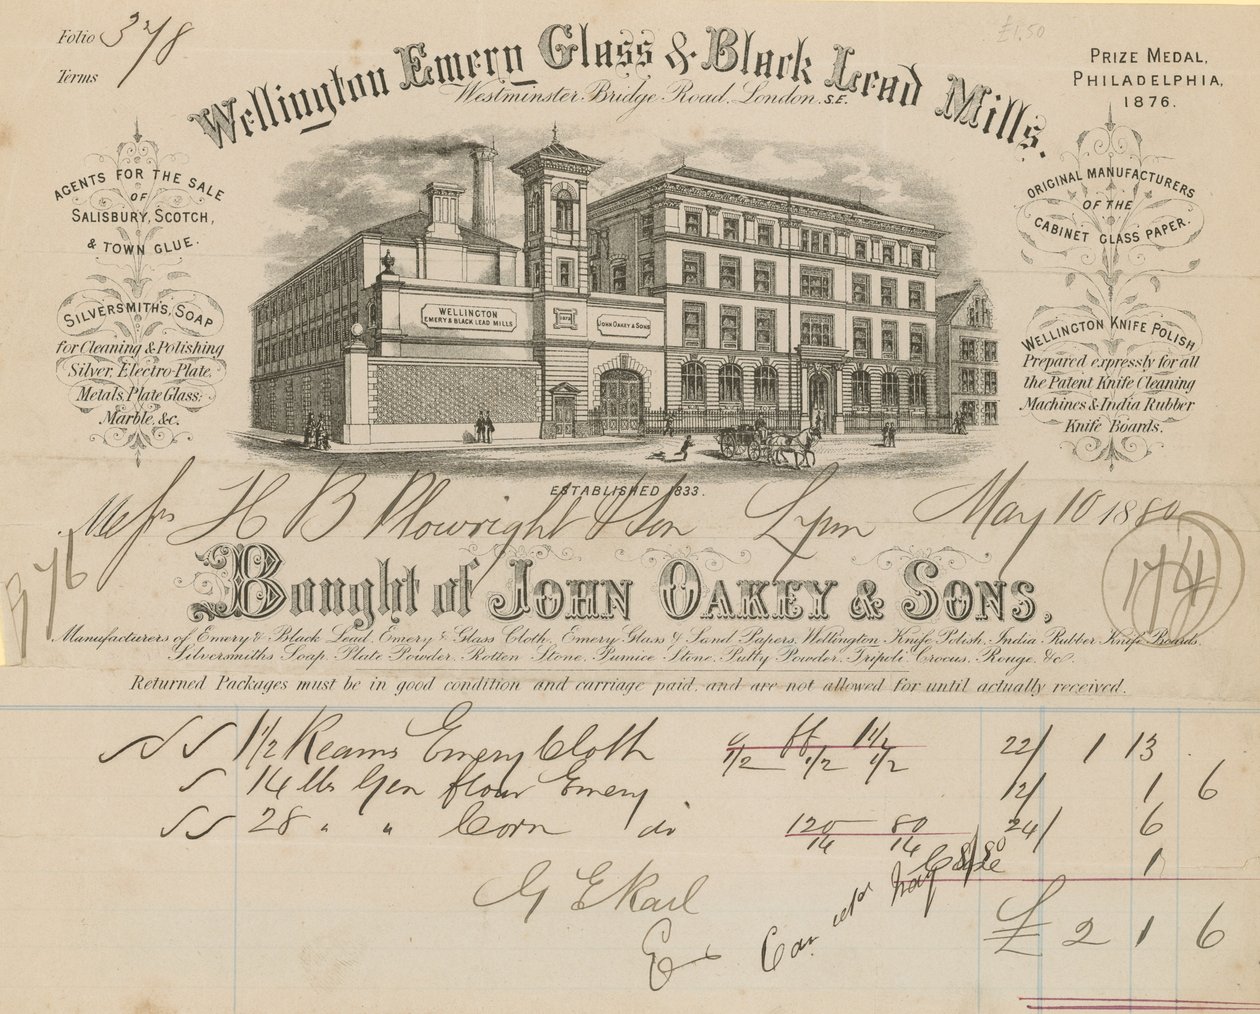 Folio 378
£1,50
Terms
Wellington Emery Glass & Black Lead Mills.
Westminster Bridge Road, London. S.E.
PRIZE MEDAL,
PHILADELPHIA,
1876.
AGENTS FOR THE SALE
OF
SALISBURY, SCOTCH,
& TOWN GLUE.
SILVERSMITH'S, SOAP
for Cleaning & Polishing
Silver, Electro-Plate,
Metals, Plate Glass,
Marble, &c.
ORIGINAL MANUFACTURERS
OF THE
CABINET GLASS PAPER.
WELLINGTON KNIFE POLISH
Prepared expressly for all
the Patent Knife Cleaning
Machines & India Rubber
Knife Boards.
WELLINGTON
EMERY & BLACK LEAD MILLS
1873
JOHN OAKEY & SONS
ESTABLISHED 1833.
Messrs H B Plowright & Son Lynn May 10 1880
174
Bought of JOHN OAKEY & SONS,
Manufacturers of Emery & Black Lead, Emery & Glass Cloth, Emery Glass & Sand Papers, Wellington Knife Polish, India Rubber Knife Boards,
Silversmiths Soap, Plate Powder, Rotten Stone, Pumice Stone, Putty Powder, Tripoli, Crocus, Rouge, &c.
Returned Packages must be in good condition and carriage paid, and are not allowed for until actually received.
1 1/2 Reams Emery Cloth 0 FF 1 1/2 22/ 1 13
1/2 1/2 1/2
14 lbs Gen flour Emery 12/ 1 6
28 " " Corn do 120 80 24/ 6
14 14
Case 1
G E Rail
£ 2 1 6